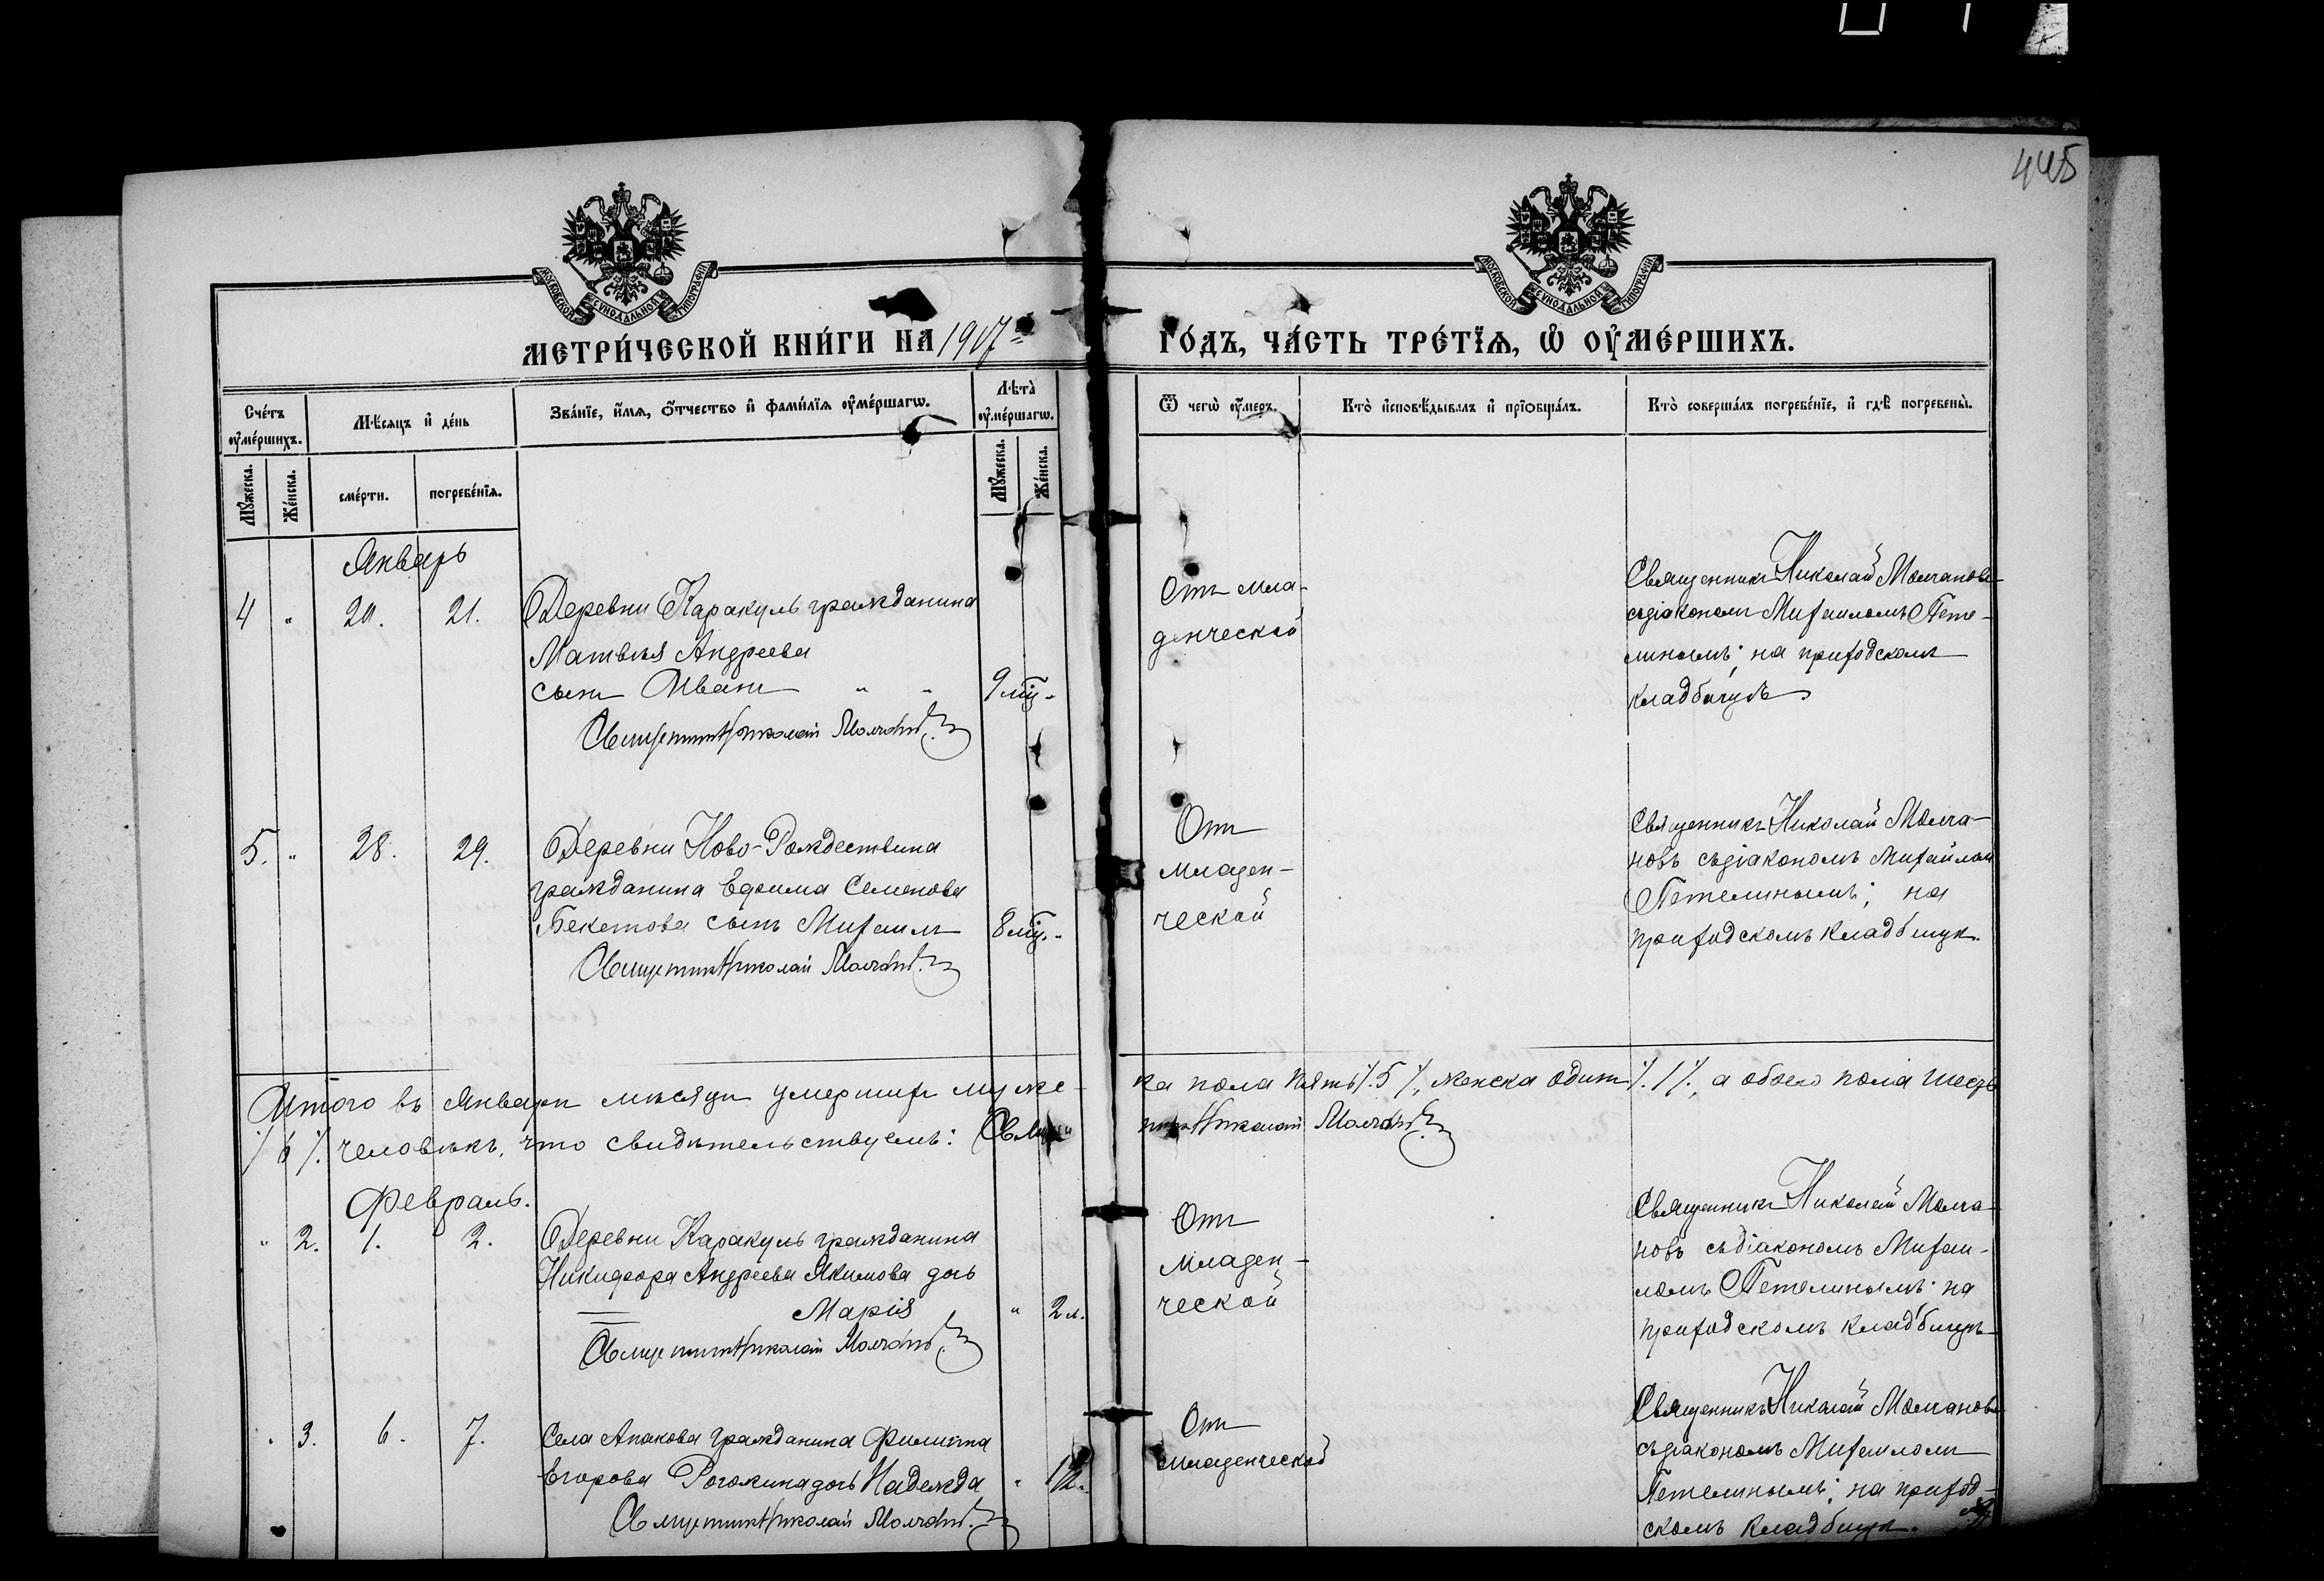 445
МОСКОВСКОЙ СѴНОДАЛЬНОЙ ТИПОГРАФІИ
МОСКОВСКОЙ СѴНОДАЛЬНОЙ ТИПОГРАФІИ
МЕТРИ́ЧЕСКОЙ КНИ́ГИ НА
ГО́ДЪ, ЧА́СТЬ ТРЕ́ТЇѦ, Ѡ҆ ОУ҆МЕ́РШИХЪ.
Сче́тъ оу҆ме́ршихъ.
Мѣ́сяцъ и҆ де́нь
Зва́нїе, и҆́мѧ, ѻ҆́тчество и҆ фами́лїѧ оу҆ме́ршагѡ.
Лѣта̀ оу҆ме́ршагѡ.
Ѿ чегѡ̀ оу҆́меръ.
Кто̀ и҆сповѣ́дывалъ и҆ прїѡбща́лъ.
Кто̀ соверша́лъ погребе́нїе, и҆ гдѣ̀ погребены̀.
Му́жеска.
Же́нска.
сме́рти.
погребе́нїѧ.
Му́жеска.
Же́нска.
Январь
4 " 20. 21.
Деревни Каракуль гражданина
Матвѣя Андреева
сынъ Иванъ " " 9 мц.
Священникъ Николай Молчановъ
Отъ мла-
денческой
Священникъ Николай Молчановъ
съ діакономъ Михаиломъ Пете-
линымъ; на приходскомъ
кладбищѣ
5. " 28. 29.
Деревни Ново-Рождествина
гражданина Ефима Семенова
Бекетова сынъ Михаилъ 8 мц. "
Священникъ Николай Молчановъ
Отъ
младен-
ческой
Священникъ Николай Молча-
новъ съ діакономъ Михаилом
Петелинымъ; на
приходскомъ кладбищѣ.
Итого въ Январѣ мѣсяцѣ умершихъ муже-
ка пола пять /.5./, женска одинъ /.1./, а обоего пола шесть
/.6./ человѣкъ, что свидѣтельствуемъ: Священ
никъ Николай Молчановъ
Февраль.
" 2. 1. 2.
Деревни Каракуль гражданина
Никифора Андреева Якимова дочь
Марія " 2 л.
Священникъ Николай Молчановъ
Отъ
младен-
ческой
Священникъ Николай Молча-
новъ съ діакономъ Михаи-
ломъ Петелинымъ; на
приходскомъ кладбищѣ
" 3. 6. 7.
Села Апакова гражданина Филиппа
Егорова Рогожина дочь Надежда "
Священникъ Николай Молчановъ
Отъ
младенческой
Священникъ Николай Молчановъ
съ діакономъ Михаиломъ
Петелинымъ; на приход-
скомъ кладбищѣ.